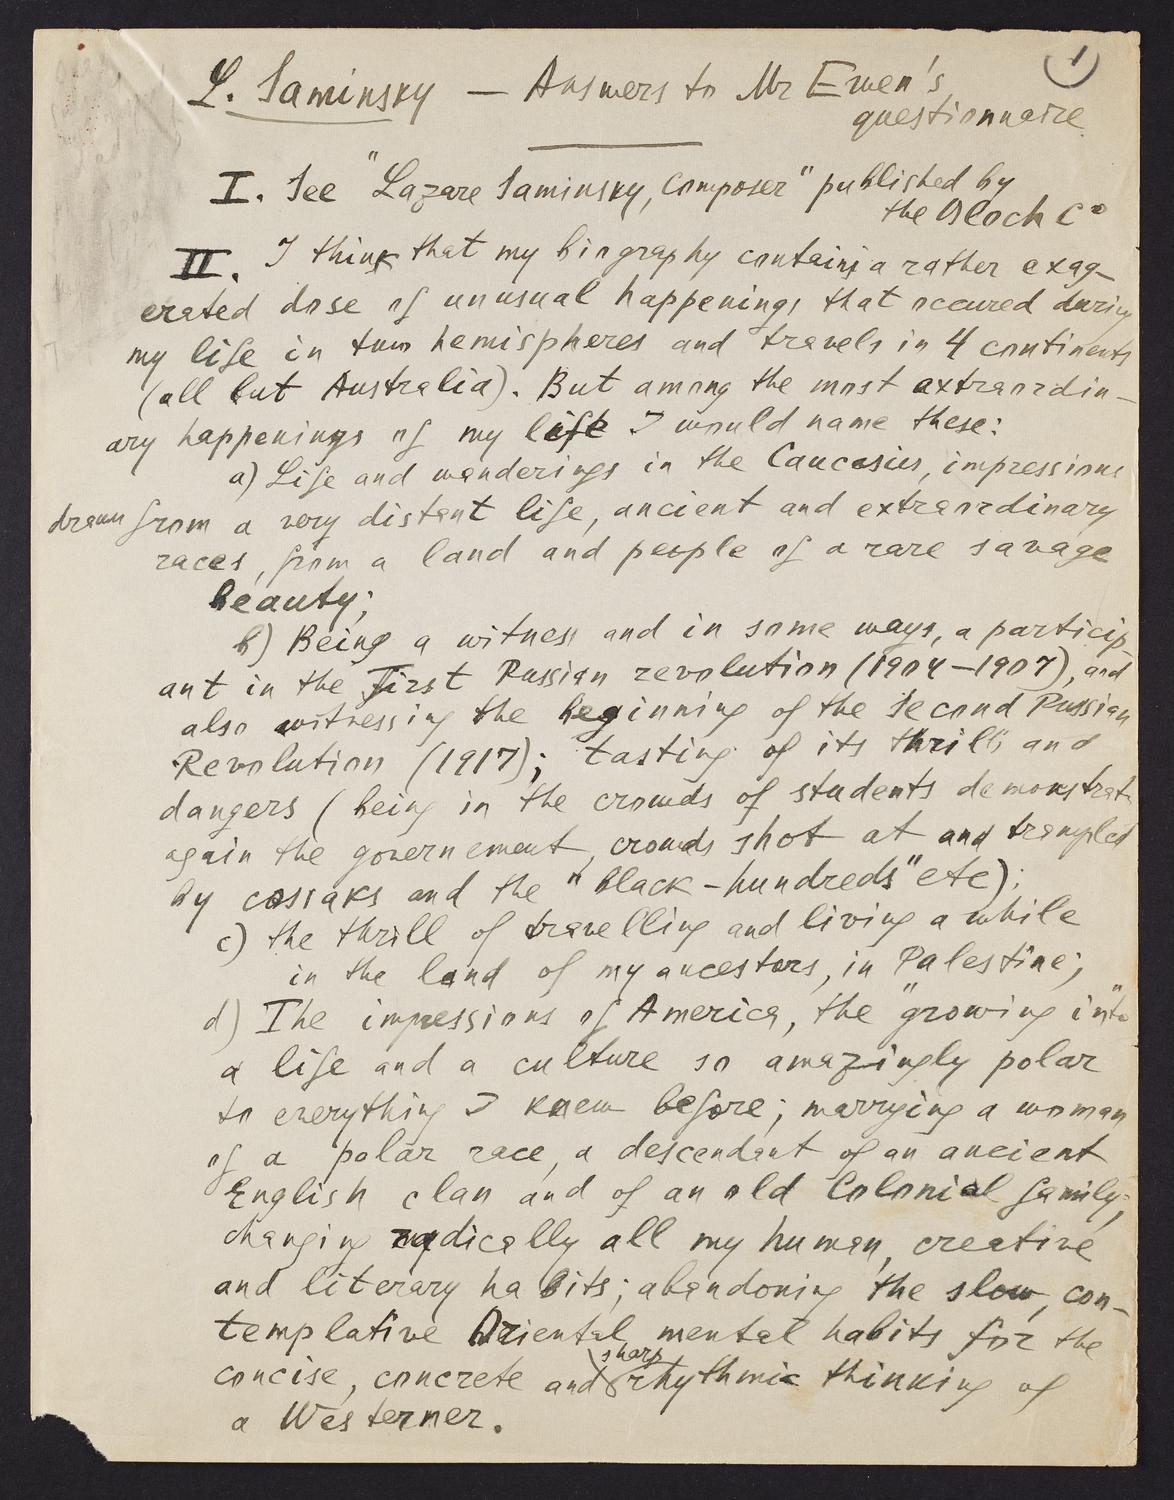 1
L. Saminsky — Answers to Mr Ewen's
questionnaire
I. See "Lazare Saminsky, Composer" published by
the Bloch Co
II. I think that my biography contains a rather exag-
erated dose of unusual happenings that occured during
my life in two hemispheres and travels in 4 continents
(all but Australia). But among the most extraordin-
ary happenings of my life I would name these:
a) Life and wanderings in the Caucasius, impressions
drawn from a very distant life, ancient and extraordinary
races, from a land and people of a rare savage
beauty;
b) Being a witness and in some ways, a particip
ant in the First Russian revolution (1904–1907), and
also witnessing the beginning of the Second Russian
Revolution (1917); tasting of its thrills and
dangers (being in the crowds of students demonstrat
again the governement, crowds shot at and trampled
by cossaks and the "black-hundreds" etc);
c) the thrill of travelling and living a while
in the land of my ancestors, in Palestine;
d) The impressions of America, the "growing in" to
a life and a culture so amazingly polar
to everything I knew before; marrying a woman
of a polar race, a descendant of an ancient
English clan and of an old Colonial family;
changing radically all my human, creative
and literary habits; abandoning the slow, con-
templative Oriental mental habits for the
concise, concrete and sharp rhythmic thinking of
a Westerner.